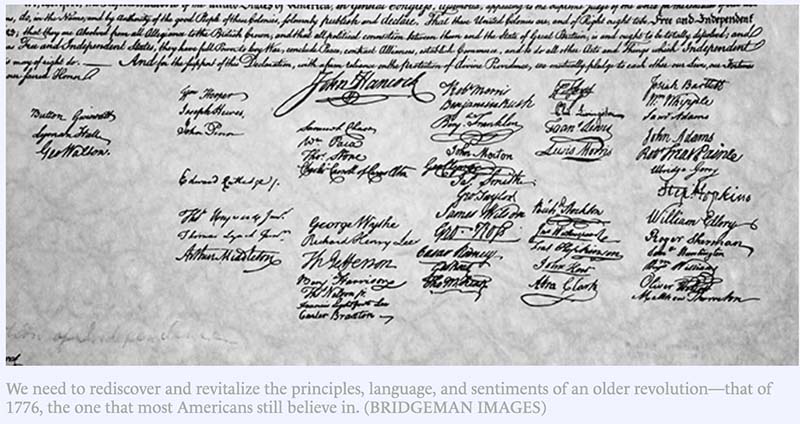 States of America, in General Congress, Assembled, appealing to the Supreme Judge of the world for the rectitude of our
do, in the Name, and by Authority of the good People of these Colonies, solemnly publish and declare, That these United Colonies are, and of Right ought to be Free and Independent
that they are Absolved from all Allegiance to the British Crown, and that all political connection between them and the State of Great Britain, is and ought to be totally dissolved; and
as Free and Independent States, they have full Power to levy War, conclude Peace, contract Alliances, establish Commerce, and to do all other Acts and Things which Independent
may of right do. — And for the support of this Declaration, with a firm reliance on the protection of divine Providence, we mutually pledge to each other our Lives, our Fortunes
our sacred Honor
Button Gwinnett
Lyman Hall
Geo Walton.
Wm Hooper
Joseph Hewes,
John Penn
Edward Rutledge
Thos Heyward Junr.
Thomas Lynch Junr.
Arthur Middleton
John Hancock
Samuel Chase
Wm Paca
Thos Stone
Charles Carroll of Carrollton
George Wythe
Richard Henry Lee
Th Jefferson
Benj Harrison
Thos Nelson jr.
Francis Lightfoot Lee
Carter Braxton
Robt Morris
Benjamin Rush
Benj. Franklin
John Morton
Geo Clymer
Jas. Smith
Geo. Taylor
James Wilson
Geo. Ross
Caesar Rodney
Geo Read
Tho M:Kean
Phil. Livingston
Frans. Lewis
Lewis Morris
Richd. Stockton
Jno Witherspoon
Fras. Hopkinson
John Hart
Abra Clark
Josiah Bartlett
Wm Whipple
Saml Adams
John Adams
Robt Treat Paine
Elbridge Gerry
Step. Hopkins
William Ellery
Roger Sherman
Saml Huntington
Wm Williams
Oliver Wolcott
Matthew Thornton
We need to rediscover and revitalize the principles, language, and sentiments of an older revolution—that of
1776, the one that most Americans still believe in. (BRIDGEMAN IMAGES)